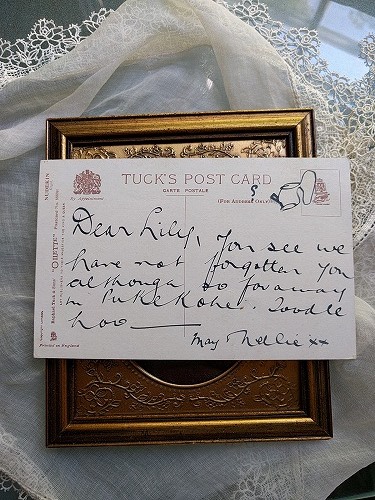 TUCK'S POST CARD
CARTE POSTALE
By Appointment
(FOR ADDRESS ONLY)
Dear Lily, You see we
have not forgotten you
although so far away
in Pukekohe. Toodle
hoo
May Nellie xx
Raphael Tuck & Sons' "OILETTE"
Printed in England